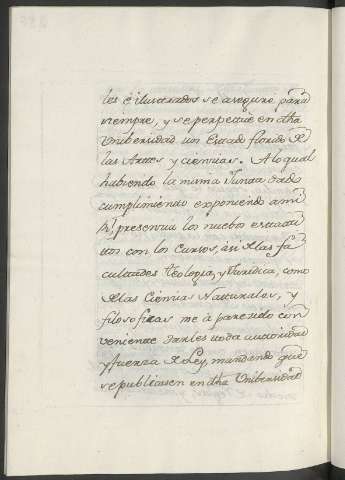 les é ilustrados se asegure para
siempre, y se perpetue en dha
Unibersidad un Estado florido de
las Artes y ciencias. A lo qual
habiendo la misma Junta dado
cumplimiento exponiendo a mi
Rl presencia los nuebos estatu
tos con los Cursos, asi de las fa
cultades teologia, y Juridica, como
de las Ciencias Naturales, y
filosoficas me á parecido con
veniente darles toda autoridad
y fuerza de Ley, mandando que
se publicasen en dha Unibersidad